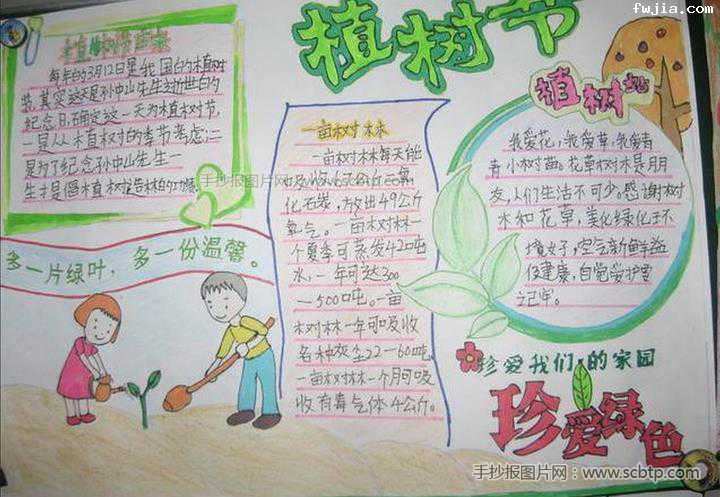 fwjia.com
植树节
植树节的由来
每年的3月12日是我国的植树
节,其实这天是孙中山先生逝世的
纪念日,确定这一天为植树节,
一是从植树的季节考虑;二
是为了纪念孙中山先生一
生提倡植树造林的功绩。
手抄报图片网.com
多一片绿叶,多一份温馨。
一亩树林
一亩树林每天能
吸收67公斤二氧
化石炭,放出49公斤
氧气。一亩树林一
个夏季可蒸发420吨
水,一年可达300
—500吨。一亩
树林一年可吸收
各种灰尘22—60吨
一亩树林一个月可吸
收有毒气体4公斤。
植树
我爱花,我爱草,我爱青
青小树苗。花草树木是朋
友,人们生活不可少。感谢树
木和花草,美化绿化
境好,空气新鲜益
健康,自觉爱护要
记牢。
珍爱我们的家园
珍爱绿色
手抄报图片网:www.scbtp.com